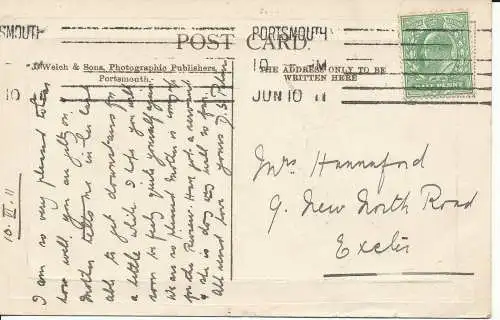 PORTSMOUTH
10 PM
JUN 10 11
SMOUTH
10
POST CARD.
Welch & Sons, Photographic Publishers,
Portsmouth.
THE ADDRESS ONLY TO BE
WRITTEN HERE
HALF PENNY
10. VI. 11
I am so very pleased to hear
how well you are getting on
Mother tells me in her last
able to get downstairs for
a little while I hope you will
soon be feeling quite yourself again
We are so pleased Mother is coming
for the Review. Have got a servant
& she is doing very well so far.
All send love yours
Mrs Hannaford
9. New North Road
Exeter